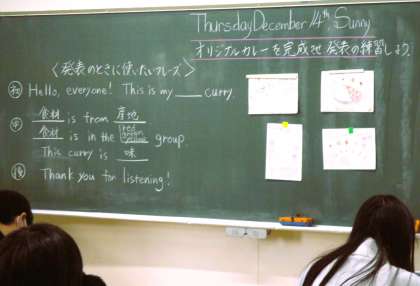 Thursday December 14th, Sunny
オリジナルカレーを完成させ 発表の練習しよう
〈発表のときに使いたいフレーズ〉
初 Hello, everyone! This is my ___ curry.
中 食材 is from 産地
食材 is in the red green yellow group.
This curry is 味
後 Thank you for listening!